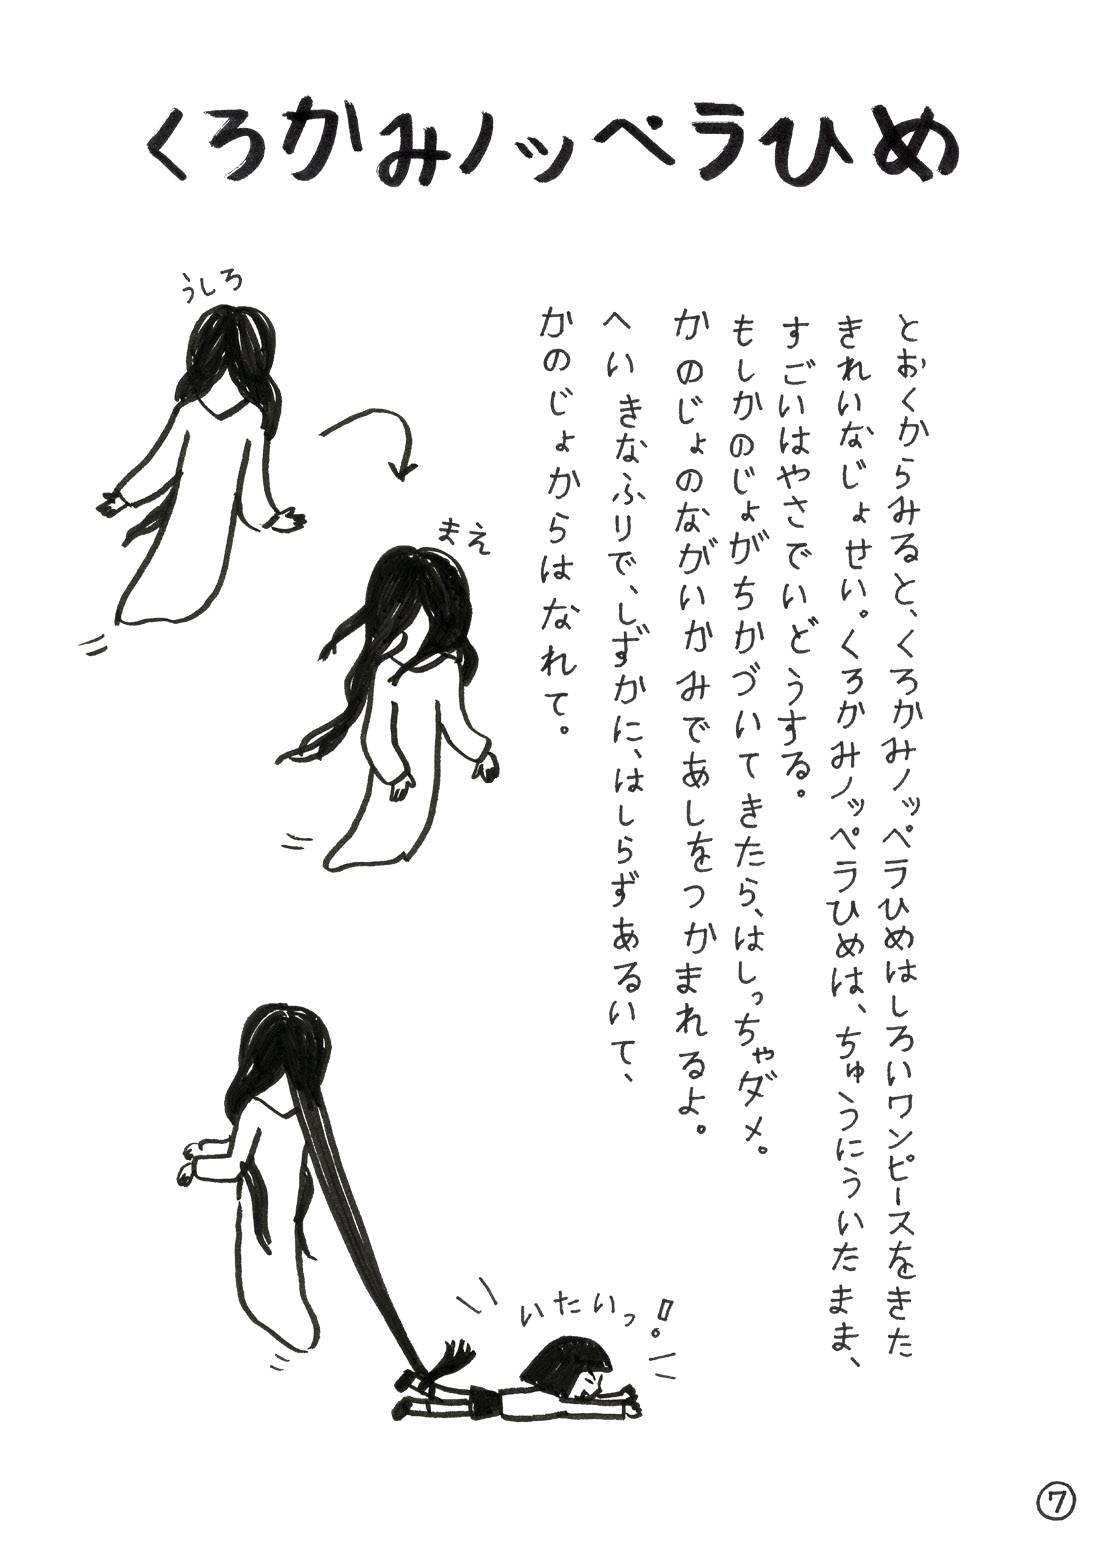 くろかみノッペラひめ
とおくからみると、くろかみノッペラひめはしろいワンピースをきた
きれいなじょせい。くろかみノッペラひめは、ちゅうにういたまま、
すごいはやさでいどうする。
もしかのじょがちかづいてきたら、はしっちゃダメ。
かのじょのながいかみであしをつかまれるよ。
へいきなふりで、しずかに、はしらずあるいて、
かのじょからはなれて。
うしろ
まえ
いたいっ!
7